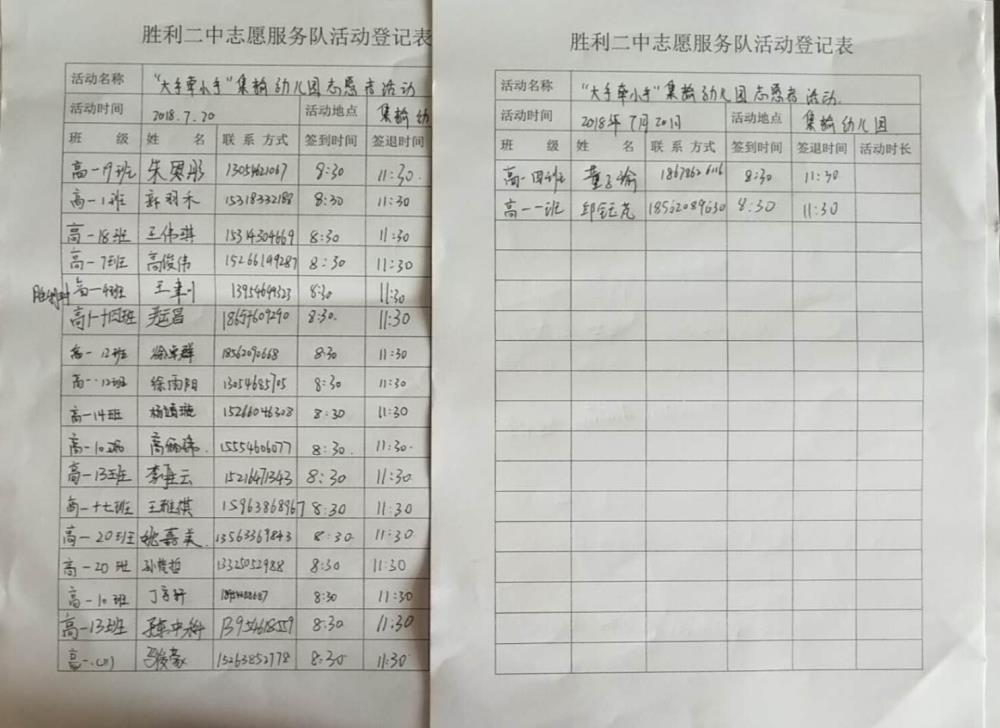 胜利二中志愿服务队活动登记表
活动名称 “大手牵小手”集输幼儿园志愿者活动
活动时间 2018.7.20 活动地点 集输幼
班 级 姓 名 联系方式 签到时间 签退时间
高一9班 朱奕彤 13054621067 8:30 11:30.
高一1班 郭羽禾 15318332188 8:30 11:30
高一18班 王伟琪 15314304669 8:30 11:30
高一7班 高俊伟 15266199287 8:30 11:30
高一4班 王聿 13954699323 8:30 11:30
高一十四班 昌 18657609290 8:30. 11:30
高一12班 徐卓群 18562090668 8:30 11:30
高一12班 徐雨阳 13054685705 8:30 11:30
高一14班 杨靖璇 15266046308 8:30 11:30
高一10班 高 15554606077 8:30. 11:30.
高一13班 李 云 15216471343 8:30 11:30
高一十七班 王雅淇 15963868967 8:30 11:30
高一20班 姚嘉美. 13563369843 8:30 11:30
高一20班 孙楚哲 13325052988 8:30 11:30
高一10班 丁 轩 8:30 11:30
高一13班 陈中 13954618559 8:30 11:30
高一 俊豪 15263852778 8:30 11:30
胜利二中志愿服务队活动登记表
活动名称 “大手牵小手”集输幼儿园志愿者活动.
活动时间 2018年7月20日 活动地点 集输幼儿园
班 级 姓 名 联系方式 签到时间 签退时间 活动时长
高一四班 董子瑜 18678626116 8:30 11:30
高一一班 邱钰尧 18562089630 8:30 11:30